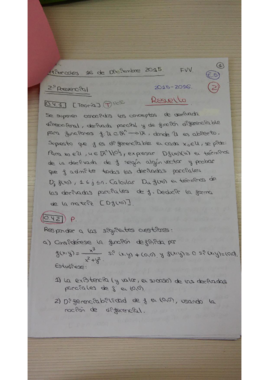 Miércoles 16 de Diciembre 2015 FVV
2º Presencial 2015-2016
Resuelto
[Teoría]
Se suponen conocidos los conceptos de derivada
direccional, derivada parcial y de función diferenciable
para funciones f: U ⊂ ℝⁿ → ℝ, donde U es abierto.
Supuesto que f es diferenciable en cada x₀ ∈ U, se pide:
Para u ∈ ℝⁿ\{0}, expresar en términos
de la derivada de f según algún vector y probar
que f admite todas las derivadas parciales
Calcular en términos de
las derivadas parciales de f. Deducir la forma
de la matriz
P.
Responder a las siguientes cuestiones:
a) Considérese la función definida por
f(x,y) = x³/(x²+y²) si (x,y) ≠ (0,0) y f(x,y) = 0 si (x,y) = (0,0).
Estudiar:
1) La existencia y valor, en su caso, de las derivadas
parciales de f en (0,0).
2) Diferenciabilidad de f en (0,0), usando la
noción de diferencial.